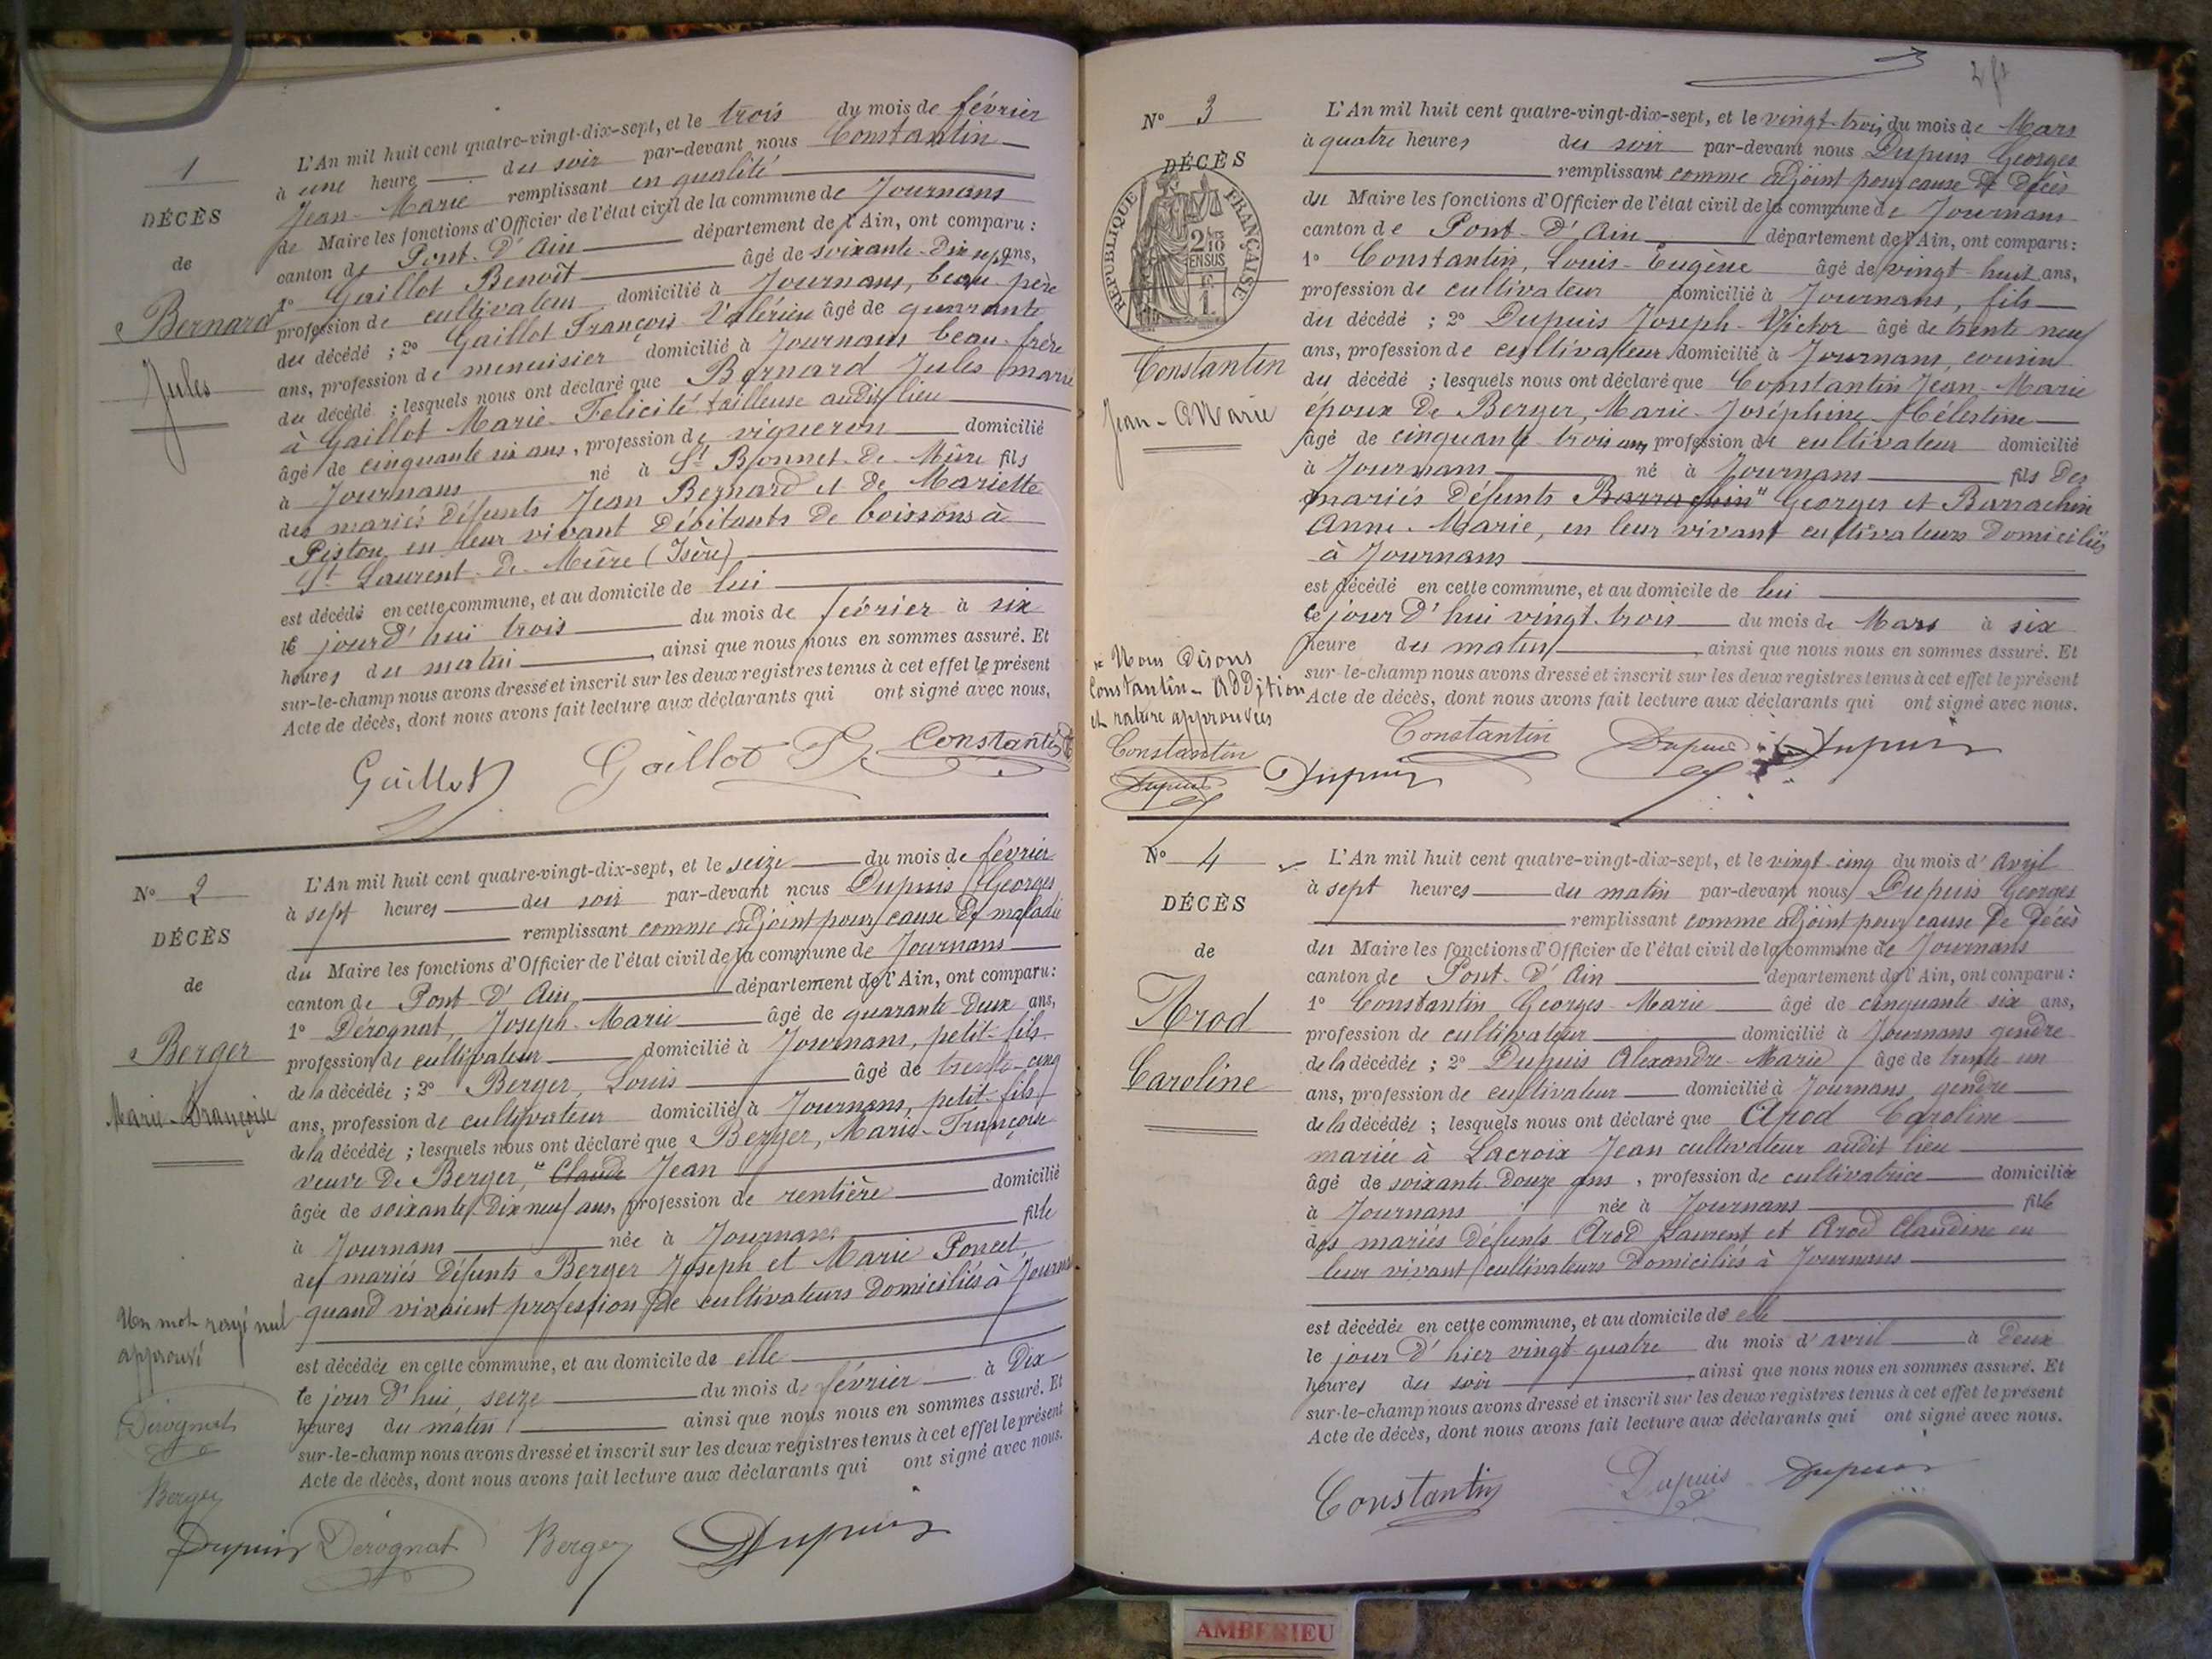 1
DÉCÈS
de
Bernard
Jules
L'An mil huit cent quatre-vingt-dix-sept, et le trois du mois de février
à une heure du soir par-devant nous Constantin
Jean-Marie remplissant en qualité
de Maire les fonctions d'Officier de l'état civil de la commune de Journans
canton de Pont-d'Ain département de l'Ain, ont comparu :
1° Gaillot Benoît âgé de soixante-dix sept ans,
profession de cultivateur domicilié à Journans, beau-père
du décédé ; 2° Gaillot François Valérien âgé de quarante
ans, profession de menuisier domicilié à Journans beau-frère
du décédé ; lesquels nous ont déclaré que Bernard Jules marié
à Gaillot Marie-Felicité tailleuse audit lieu
âgé de cinquante six ans, profession de vigneron domicilié
à Journans né à St Bonnet-de-Mûre fils
des mariés défunts Jean Bernard et de Mariette
Piston en leur vivant débitants de boissons à
St Laurent-de-Mûre (Isère)
est décédé en cette commune, et au domicile de lui
le jourd'hui trois du mois de février à six
heures du matin, ainsi que nous nous en sommes assuré. Et
sur-le-champ nous avons dressé et inscrit sur les deux registres tenus à cet effet le présent
Acte de décès, dont nous avons fait lecture aux déclarants qui ont signé avec nous.
Gaillot Gaillot Constantin
N° 2
DÉCÈS
de
Berger
Marie-Françoise
L'An mil huit cent quatre-vingt-dix-sept, et le seize du mois de février
à sept heures du soir par-devant nous Dupuis Georges
remplissant comme adjoint pour cause de maladie
du Maire les fonctions d'Officier de l'état civil de la commune de Journans
canton de Pont-d'Ain département de l'Ain, ont comparu :
1° Dérognat, Joseph-Marie âgé de quarante deux ans,
profession de cultivateur domicilié à Journans, petit-fils
de la décédée ; 2° Berger, Louis âgé de trente-cinq
ans, profession de cultivateur domicilié à Journans, petit-fils
de la décédée ; lesquels nous ont déclaré que Berger, Marie-Françoise
veuve de Berger, " Claude Jean
âgée de soixante-dix neuf ans, profession de rentière domicilié
à Journans née à Journans fille
des mariés défunts Berger Joseph et Marie Poncet
quand vivaient profession de cultivateurs domiciliés à Journans
Un mot rayé nul
approuvé
Dérognat
Berger
est décédée en cette commune, et au domicile de elle
le jour d'hui, seize du mois de février à dix
heures du matin ainsi que nous nous en sommes assuré. Et
sur-le-champ nous avons dressé et inscrit sur les deux registres tenus à cet effet le présent
Acte de décès, dont nous avons fait lecture aux déclarants qui ont signé avec nous.
Dupuis Dérognat Berger Dupuis
N° 3
DÉCÈS
RÉPUBLIQUE FRANÇAISE
Constantin
Jean-Marie
L'An mil huit cent quatre-vingt-dix-sept, et le vingt-trois du mois de Mars
à quatre heures du soir par-devant nous Dupuis Georges
remplissant comme adjoint pour cause de décès
du Maire les fonctions d'Officier de l'état civil de la commune de Journans
canton de Pont-d'Ain département de l'Ain, ont comparu :
1° Constantin, Louis-Eugène âgé de vingt-huit ans,
profession de cultivateur domicilié à Journans, fils
du décédé ; 2° Dupuis Joseph-Victor âgé de trente neuf
ans, profession de cultivateur domicilié à Journans, cousin
du décédé ; lesquels nous ont déclaré que Constantin Jean-Marie
époux de Berger, Marie-Joséphine-Célestine
âgé de cinquante-trois ans, profession de cultivateur domicilié
à Journans né à Journans fils des
mariés défunts Barrachin " Georges et Barrachin
Anne-Marie, en leur vivant cultivateurs domiciliés
à Journans
est décédé en cette commune, et au domicile de lui
le jour d'hui vingt-trois du mois de Mars à six
heure du matin, ainsi que nous nous en sommes assuré. Et
sur-le-champ nous avons dressé et inscrit sur les deux registres tenus à cet effet le présent
Acte de décès, dont nous avons fait lecture aux déclarants qui ont signé avec nous.
" Nous disons
Constantin - Addition
et rature approuvées
Constantin
Dupuis Dupuis
Constantin Dupuis Dupuis
N° 4
DÉCÈS
de
Arod
Caroline
L'An mil huit cent quatre-vingt-dix-sept, et le vingt-cinq du mois d'avril
à sept heures du matin par-devant nous Dupuis Georges
remplissant comme adjoint pour cause de décès
du Maire les fonctions d'Officier de l'état civil de la commune de Journans
canton de Pont-d'Ain département de l'Ain, ont comparu :
1° Constantin Georges-Marie âgé de cinquante-six ans,
profession de cultivateur domicilié à Journans gendre
de la décédée ; 2° Dupuis Alexandre-Marie âgé de trente-un
ans, profession de cultivateur domicilié à Journans gendre
de la décédée ; lesquels nous ont déclaré que Arod Caroline
mariée à Lacroix Jean cultivateur audit lieu
âgé de soixante-douze ans, profession de cultivatrice domiciliée
à Journans née à Journans fille
des mariés défunts Arod Laurent et Arod Claudine en
leur vivant cultivateurs domiciliés à Journans
est décédée en cette commune, et au domicile de elle
le jour d'hier vingt-quatre du mois d'avril à deux
heures du soir ainsi que nous nous en sommes assuré. Et
sur-le-champ nous avons dressé et inscrit sur les deux registres tenus à cet effet le présent
Acte de décès, dont nous avons fait lecture aux déclarants qui ont signé avec nous.
Constantin Dupuis Dupuis
AMBERIEU